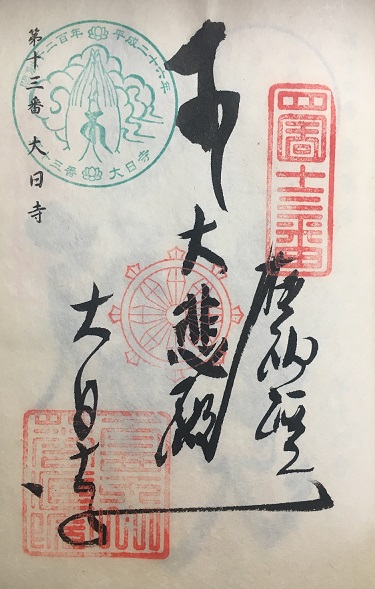 四國十三番
奉納経
大悲殿
大日寺
二百年 平成二十六年
十三番 大日寺
第十三番 大日寺